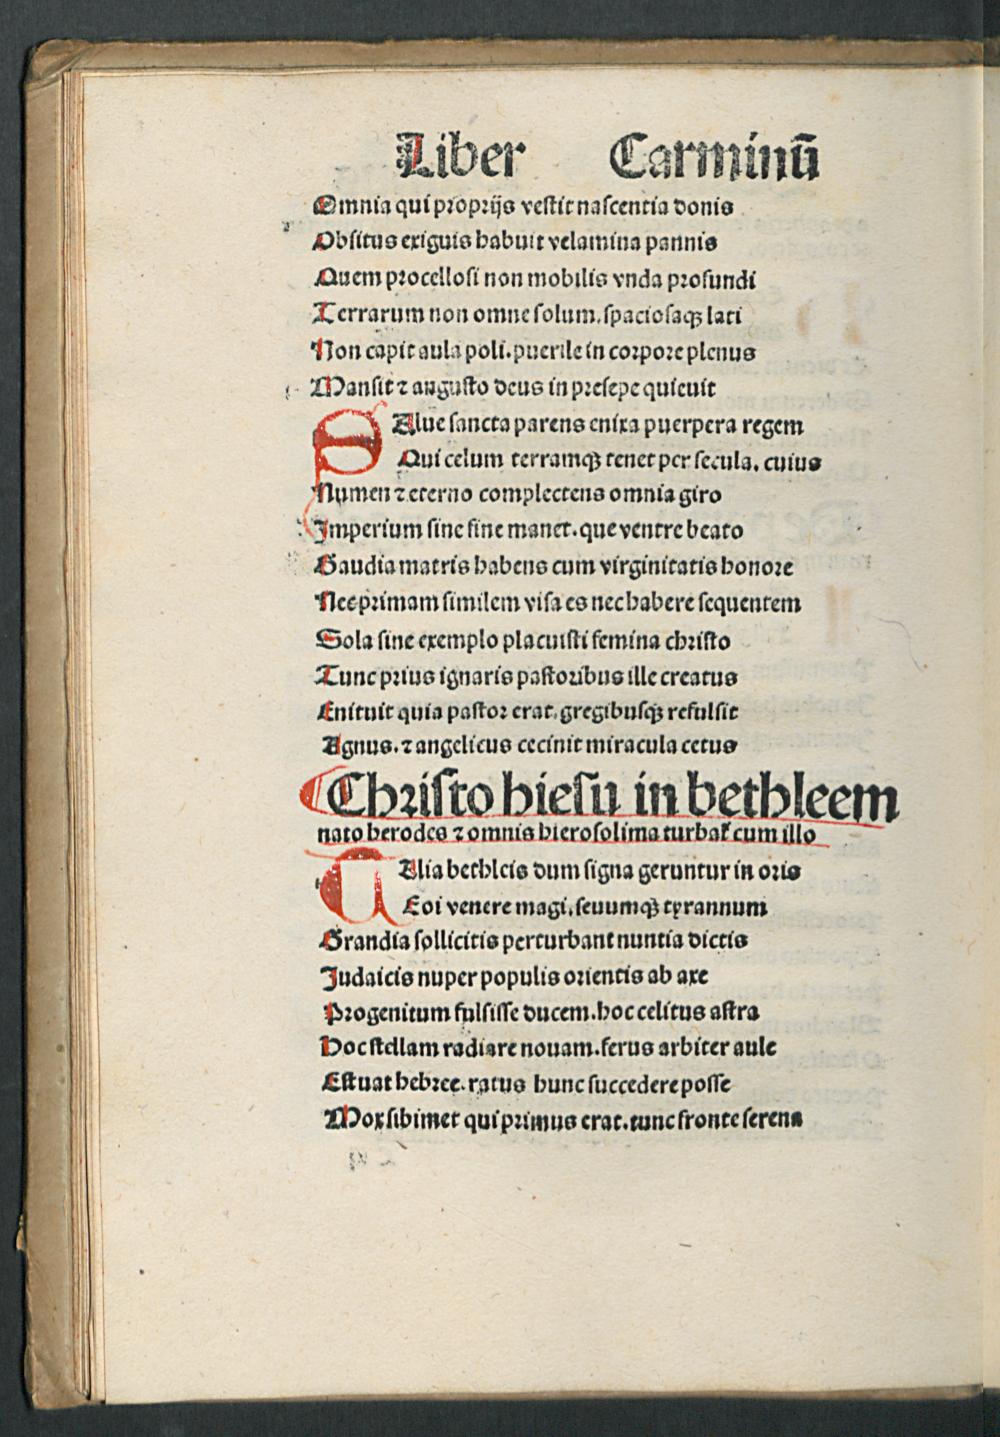 Liber Carminū
Omnia qui proprijs vestit nascentia donis
Obsitus exiguis habuit velamina pannis
Quem procellosi non mobilis vnda profundi
Terrarum non omne solum. spaciosaqꝫ lati
Non capit aula poli. puerile in corpore plenus
Mansit ⁊ angusto deus in presepe quieuit
SAlue sancta parens enixa puerpera regem
Qui celum terramqꝫ tenet per secula. cuius
Numen ⁊ eterno complectens omnia giro
Imperium sine fine manet. que ventre beato
Gaudia matris habens cum virginitatis honore
Nec primam similem visa es nec habere sequentem
Sola sine exemplo placuisti femina christo
Tunc prius ignaris pastoribus ille creatus
Enituit quia pastor erat. gregibusqꝫ refulsit
Agnus. ⁊ angelicus cecinit miracula cetus
Christo hiesu in bethleem
nato herodes ⁊ omnis hierosolima turbat̄ cum illo
TAlia bethleis dum signa geruntur in oris
Eoi venere magi. seuumqꝫ tyrannum
Grandia sollicitis perturbant nuntia dictis
Judaicis nuper populis orientis ab axe
Progenitum fulsisse ducem. hoc celitus astra
Hoc stellam radiare nouam. ferus arbiter aule
Estuat hebree. ratus hunc succedere posse
Mox sibimet qui primus erat. tunc fronte serena